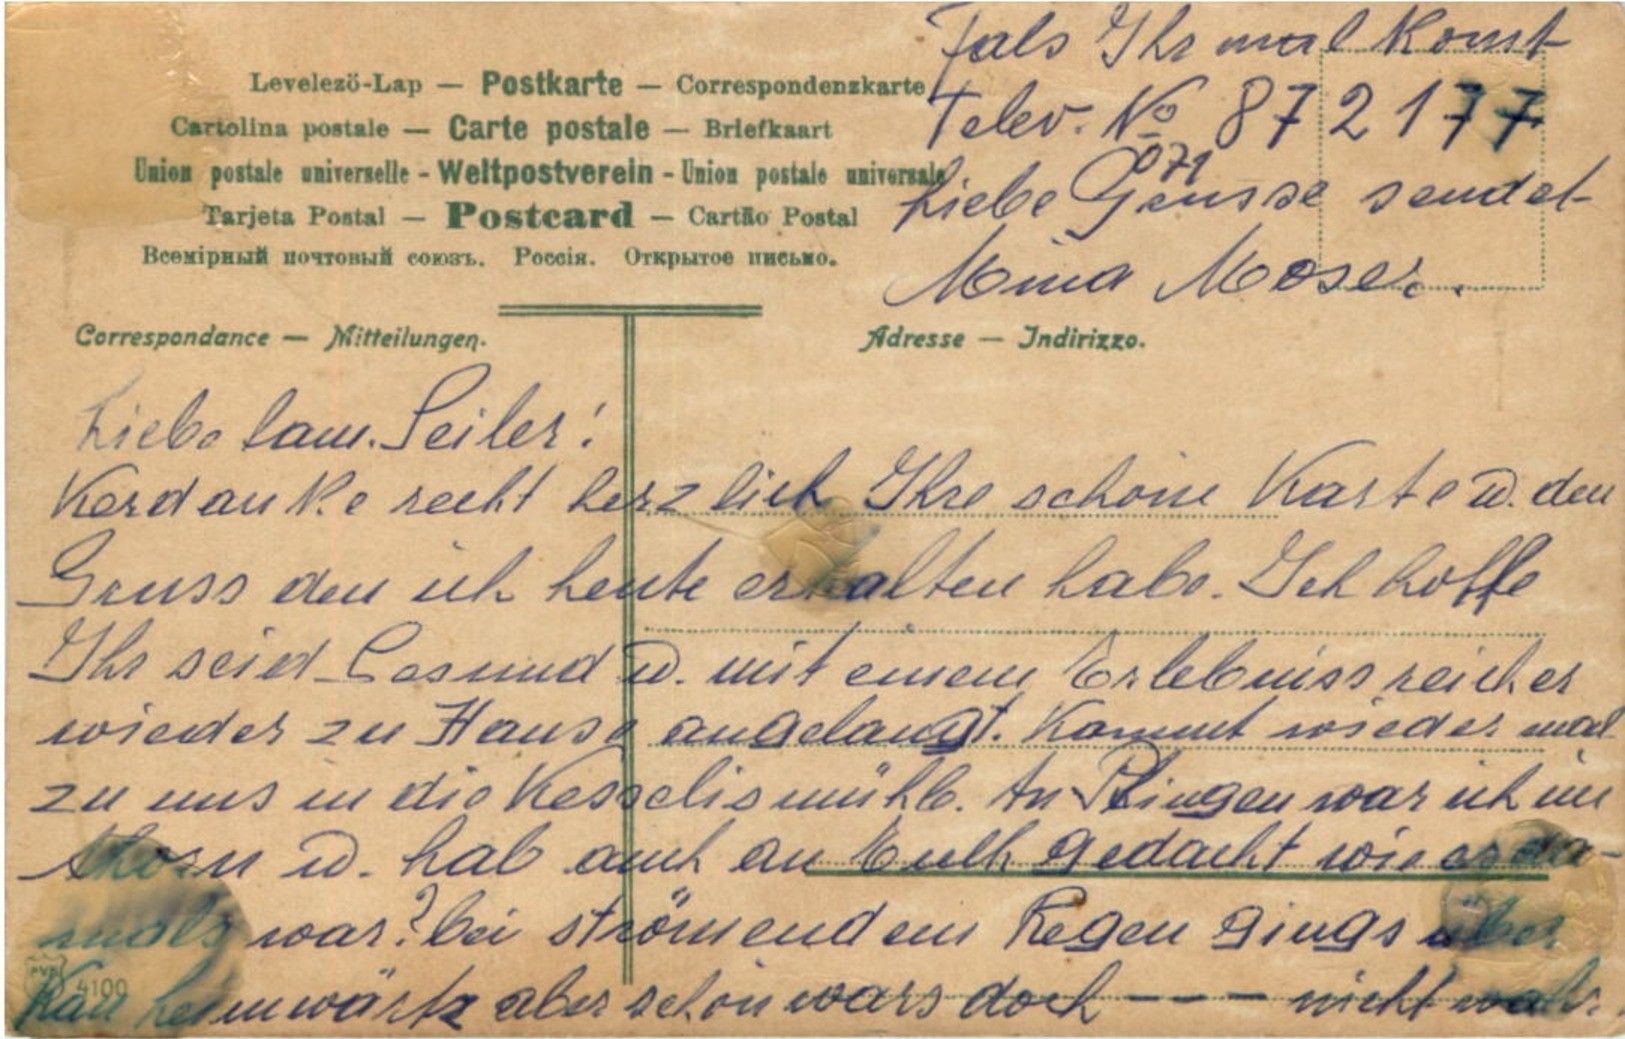 Levelező-Lap — Postkarte — Correspondenzkarte
Cartolina postale — Carte postale — Briefkaart
Union postale universelle - Weltpostverein - Union postale universale
Tarjeta Postal — Postcard — Cartão Postal
Всемірный почтовый союзъ. Россія. Открытое письмо.
Correspondance — Mitteilungen.
Adresse — Indirizzo.
Liebe Fam. Seiler!
Verdanke recht herzlich Ihre schöne Karte u. den
Gruss den ich heute erhalten habe. Ich hoffe
Ihr seid Gesund u. mit einem Erlebniss reicher
wieder zu Hause angelangt. Kommt wieder mal
zu uns in die Kesselismühle. An Pfingsten war ich im
u. hab auch an Euch gedacht wie es da-
mals war? bei strömendem Regen gings über
heimwärts aber schön wars doch - - - nicht wahr.
Fals Ihr mal Komt
Telev. No 872177
071
Liebe Grüsse sendet
Mina Moser.
4100